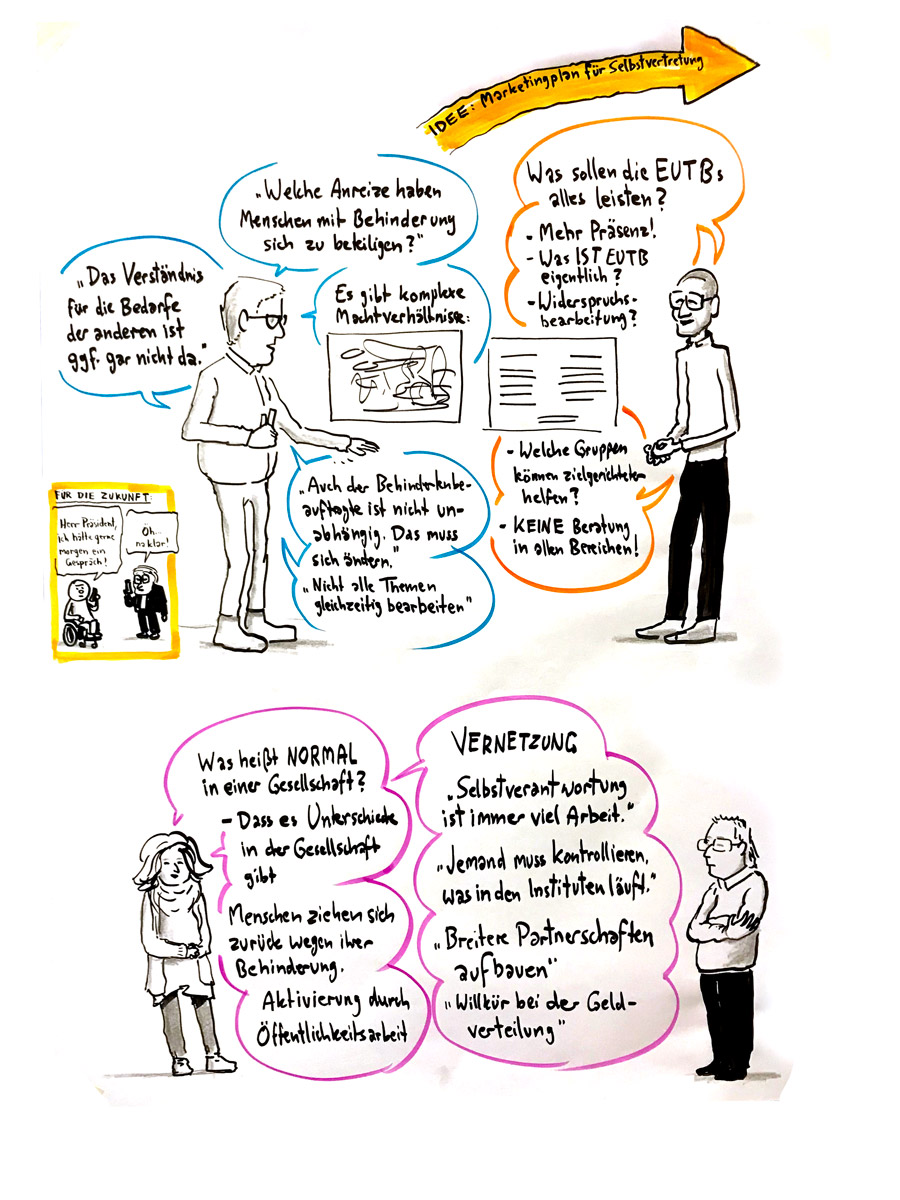 IDEE: Marketingplan für Selbstvertretung
„Welche Anreize haben
Menschen mit Behinderung
sich zu beteiligen?"
„Das Verständnis
für die Bedarfe
der anderen ist
ggf. gar nicht da."
Es gibt komplexe
Machtverhältnisse:
Was sollen die EUTBs
alles leisten?
- Mehr Präsenz!
- Was IST EUTB
eigentlich?
- Widerspruchs-
bearbeitung?
- Welche Gruppen
können zielgerichteter
helfen?
- KEINE Beratung
in allen Bereichen!
„Auch der Behindertenbe-
auftragte ist nicht un-
abhängig. Das muss
sich ändern."
„Nicht alle Themen
gleichzeitig bearbeiten"
FÜR DIE ZUKUNFT:
Herr Präsident,
ich hätte gerne
morgen ein
Gespräch!
Öh...
na klar!
Was heißt NORMAL
in einer Gesellschaft?
- Dass es Unterschiede
in der Gesellschaft
gibt
Menschen ziehen sich
zurück wegen ihrer
Behinderung.
Aktivierung durch
Öffentlichkeitsarbeit
VERNETZUNG
„Selbstverantwortung
ist immer viel Arbeit."
„Jemand muss kontrollieren,
was in den Instituten läuft."
„Breitere Partnerschaften
aufbauen"
„Willkür bei der Geld-
verteilung"